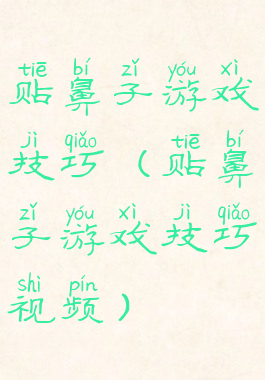 tiē bí zǐ yóu xì
贴鼻子游戏
jì qiǎo tiē bí
技巧（贴鼻
zǐ yóu xì jì qiǎo
子游戏技巧
shì pín
视频）